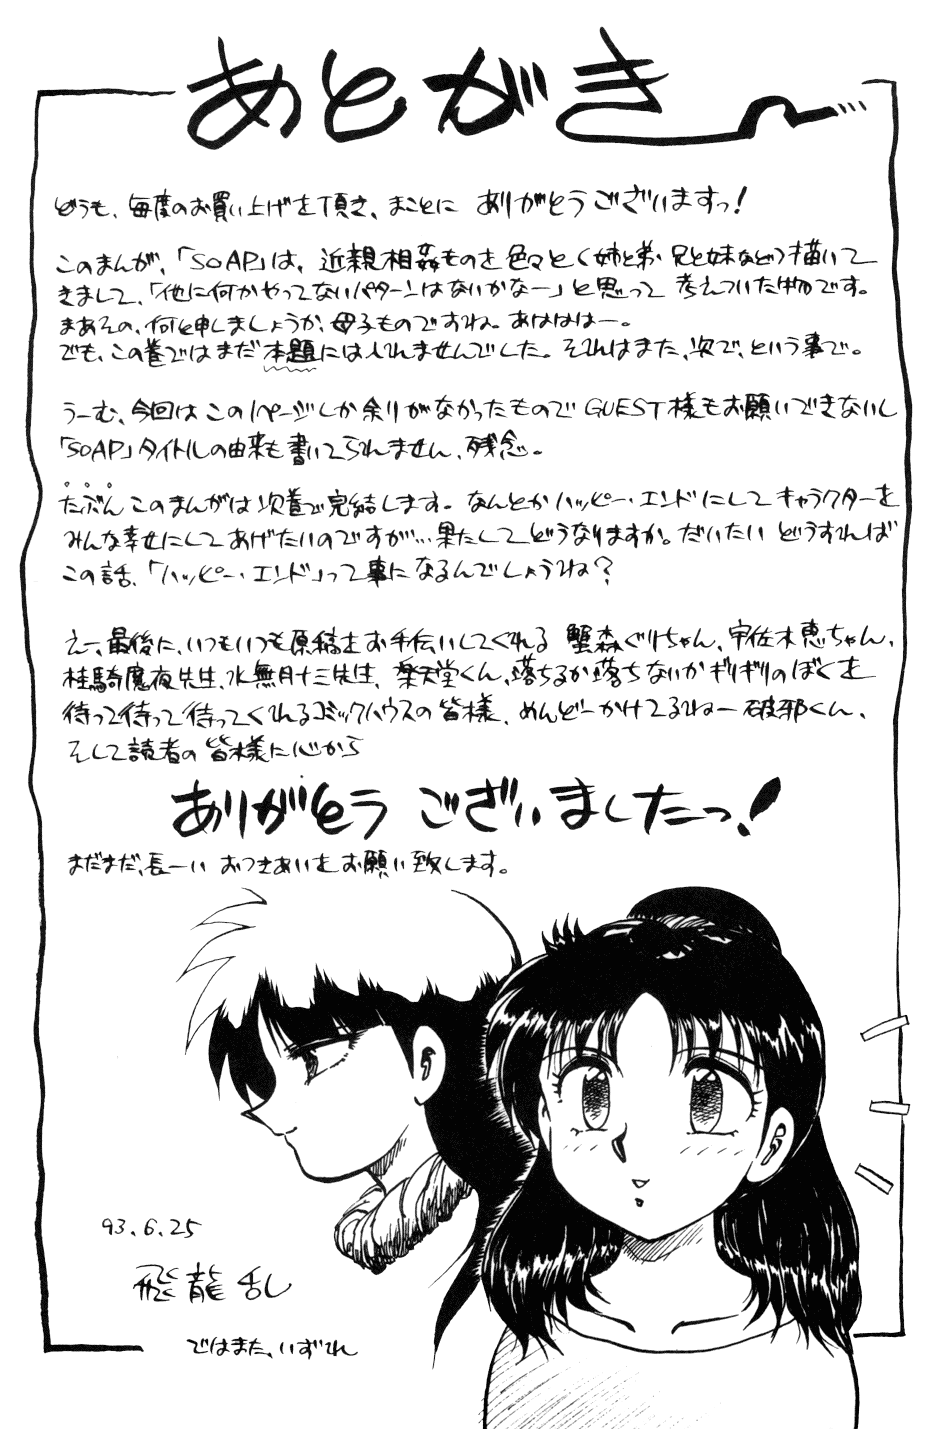 あとがき〜…
どうも、毎度のお買い上げを頂き、まことに ありがとうございますっ!
このまんが、「SOAP」は、近親相姦ものを色々とく姉と弟・兄と妹などう描いて
きまして、「他に何かやってないパターンはないかなー」と思って 考えついた物です。
まあその、何と申しましょうか、母子ものですね。あはははー。
でも、この巻ではまだ本題には入れませんでした。それはまた、次で、という事で。
うーむ、今回はこの1ページしか余りがなかったもので GUEST様もお願いできないし
「SOAP」タイトルの由来も書いてられません、残念。
たぶんこのまんがは次巻で完結します。なんとかハッピー・エンドにしてキャラクターを
みんな幸せにしてあげたいのですが…果たしてどうなりますか。だいたい どうすれば
この話、「ハッピー・エンド」って事になるんでしょうね?
えー、最後に、いつもいつも原稿をお手伝いしてくれる 蟹森ぐりちゃん、宇佐木恵ちゃん、
桂騎魔夜先生、水無月十三先生、楽天堂くん、落ちるか落ちないかギリギリのぼくを
待って待って待ってくれるコミックハウスの皆様、めんどーかけてるねー破邪くん、
そして読者の皆様に心から
ありがとう ございましたっ!
まだまだ、長ーい おつきあいを お願い致します。
93.6.25
飛龍乱
ではまた、いずれ